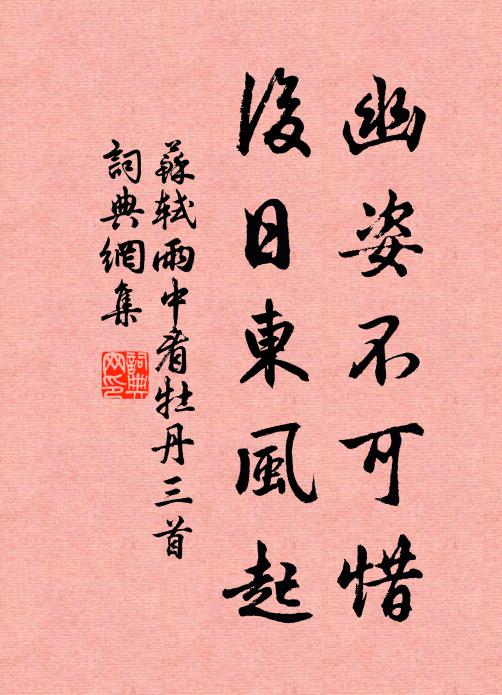 幽姿不可惜
後日東風起
蘇軾雨中看牡丹三首
詞典網集
詞典
网印